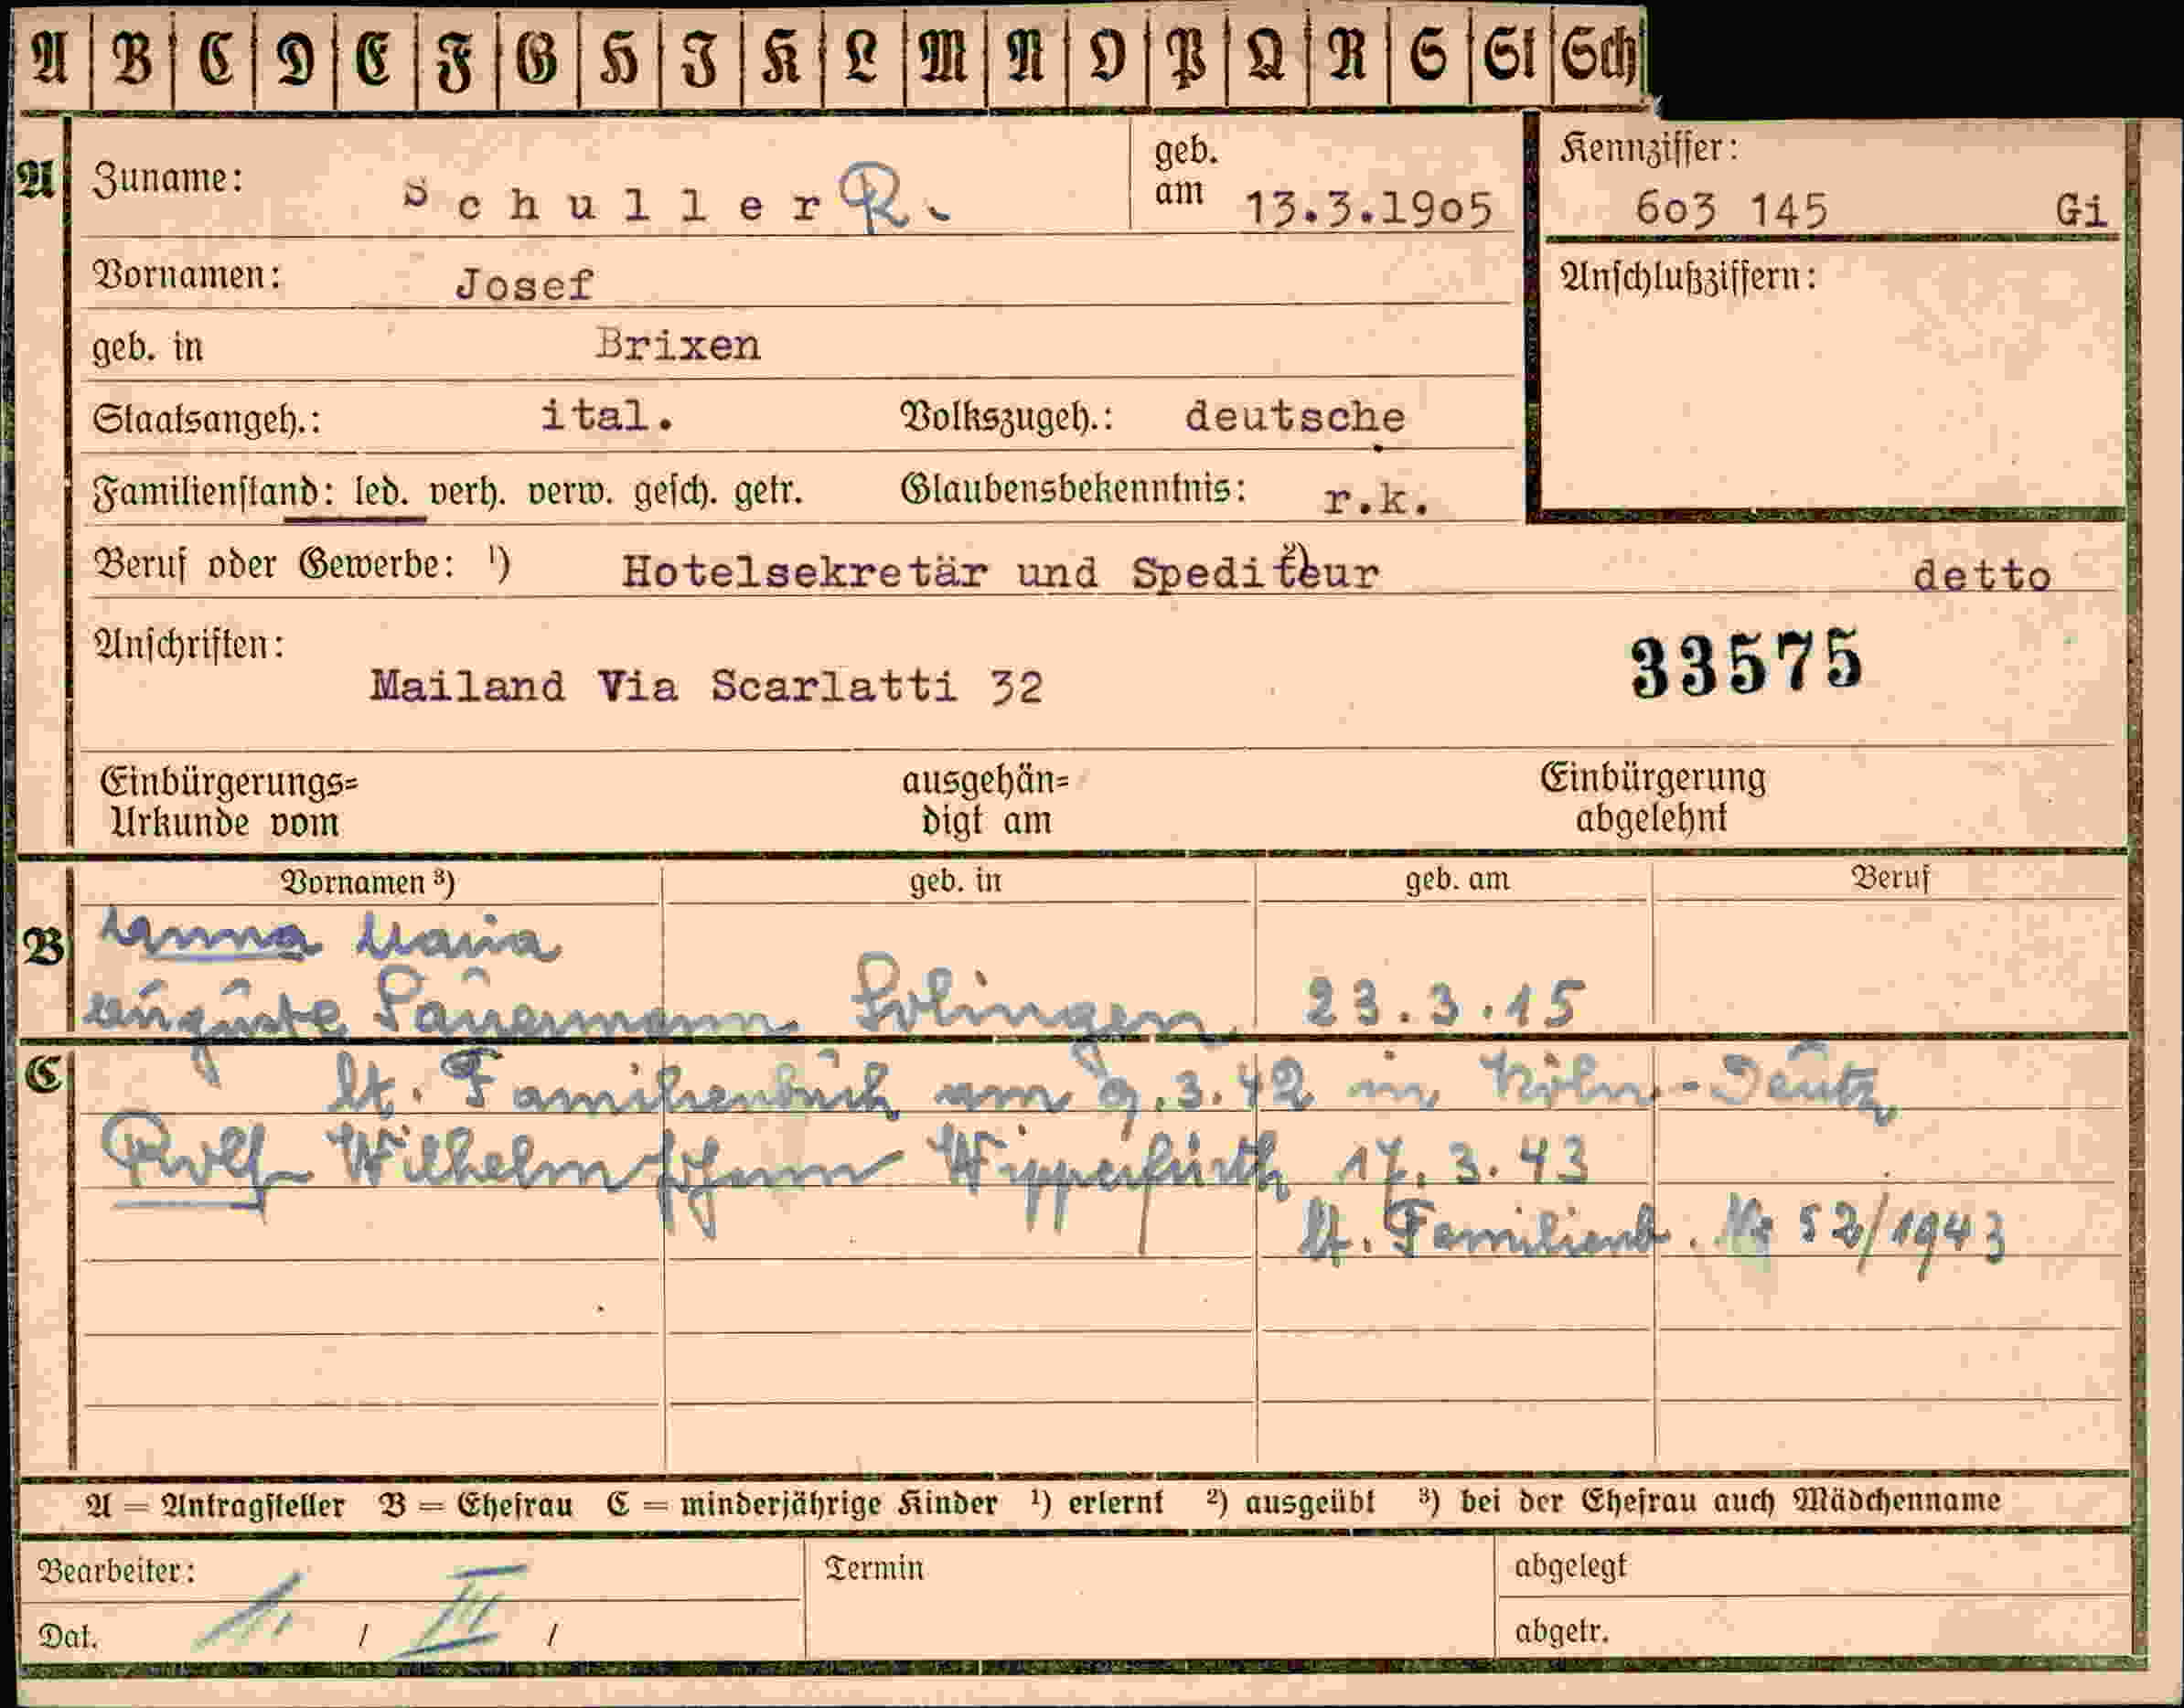 A B C D E F G H I K L M N O P Q R S St Sch
A Zuname: Schuller R. geb. am 13.3.1905 Kennziffer: 603 145 Gi
Vornamen: Josef Anschlußziffern:
geb. in Brixen
Staatsangeh.: ital. Volkszugeh.: deutsche
Familienstand: led. verh. verw. gesch. getr. Glaubensbekenntnis: r.k.
Beruf oder Gewerbe: ¹) Hotelsekretär und Spediteur ²) detto
Anschriften:
33575
Mailand Via Scarlatti 32
Einbürgerungs= ausgehän= Einbürgerung
Urkunde vom digt am abgelehnt
Vornamen ³) geb. in geb. am Beruf
B Hanna Maria
Auguste Sauermann Solingen 23.3.15
C lt. Familienbuch am 9.3.42 in Köln-Deutz
Rolf Wilhelm Johann Wipperfürth 17.3.43
lt. Familienb. Nr 52/1943
A = Antragsteller B = Ehefrau C = minderjährige Kinder ¹) erlernt ²) ausgeübt ³) bei der Ehefrau auch Mädchenname
Bearbeiter: Termin abgelegt
Dat. / III / abgetr.